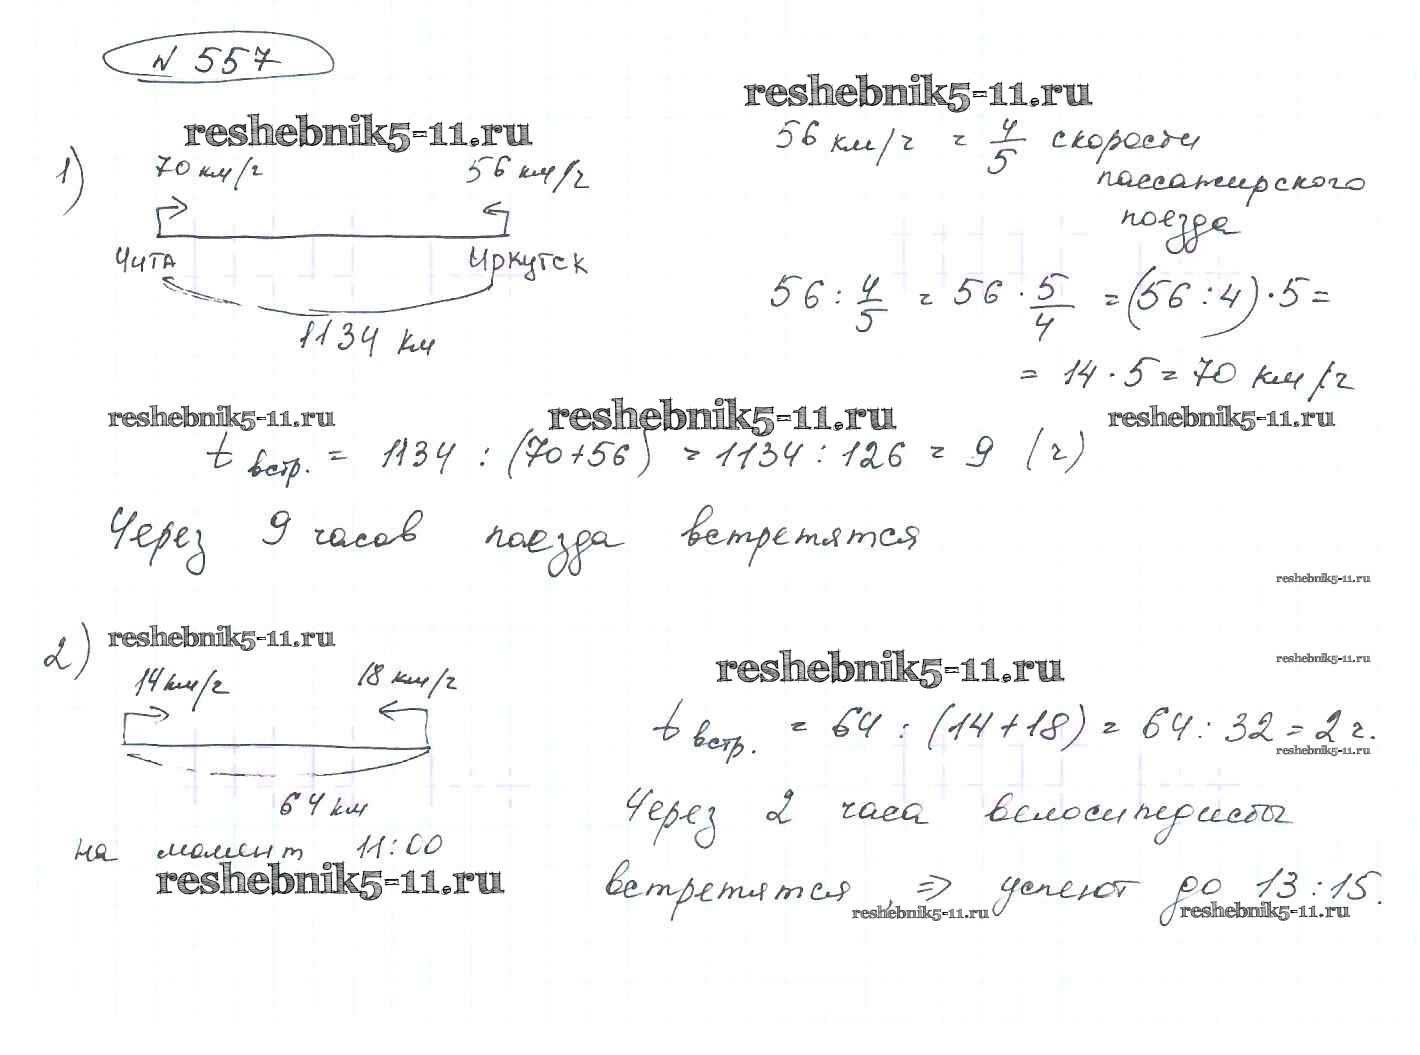 № 557
reshebnik5-11.ru
reshebnik5-11.ru
1)
70 км/ч
56 км/ч
Чита
Иркутск
1134 км
56 км/ч = 4/5 скорости
пассажирского
поезда
56 : 4/5 = 56 · 5/4 = (56 : 4) · 5 =
= 14 · 5 = 70 км/ч
reshebnik5-11.ru
reshebnik5-11.ru
reshebnik5-11.ru
t встр. = 1134 : (70+56) = 1134 : 126 = 9 (ч)
Через 9 часов поезда встретятся
reshebnik5-11.ru
2)
reshebnik5-11.ru
14 км/ч
18 км/ч
64 км
на момент 11:00
reshebnik5-11.ru
reshebnik5-11.ru
reshebnik5-11.ru
t встр. = 64 : (14+18) = 64 : 32 = 2 ч.
reshebnik5-11.ru
Через 2 часа велосипедисты
встретятся ⇒ успеют до 13:15.
reshebnik5-11.ru
reshebnik5-11.ru